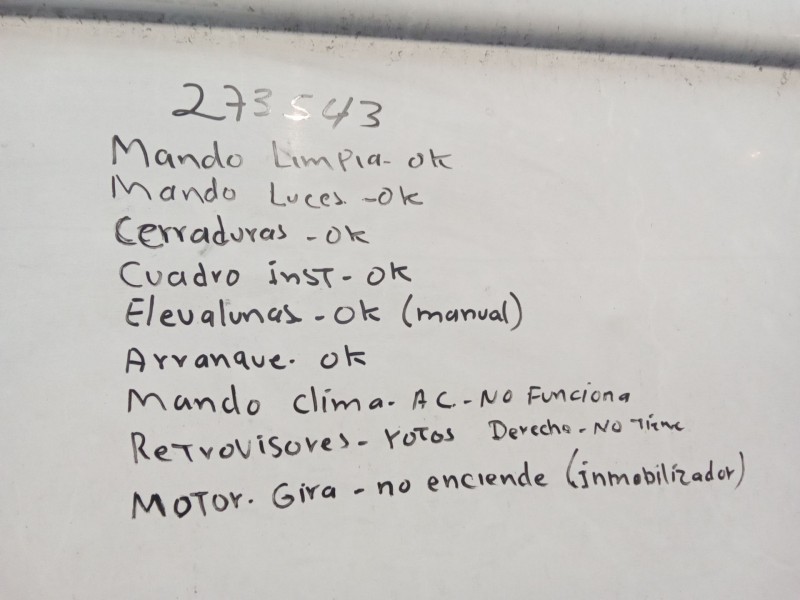 273543
Mando Limpia- OK
Mando Luces. -OK
Cerraduras - OK
Cuadro inst - OK
Elevalunas - OK (manual)
Arranque. OK
Mando clima- AC.- NO Funciona
Retrovisores - rotos Derecho - NO Tiene
MOTOR. Gira - no enciende (inmobilizador)